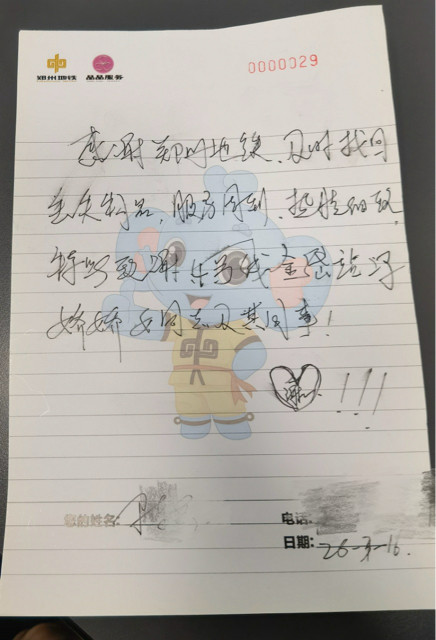 郑州地铁 品品服务
0000029
感谢郑州地铁,及时找回
丢失物品,服务周到、热情细致,
特此致谢 号线金岱站
娇娇女同志及其同事!
谢 !!!
您的姓名:
电话:
日期: 26-3-16.